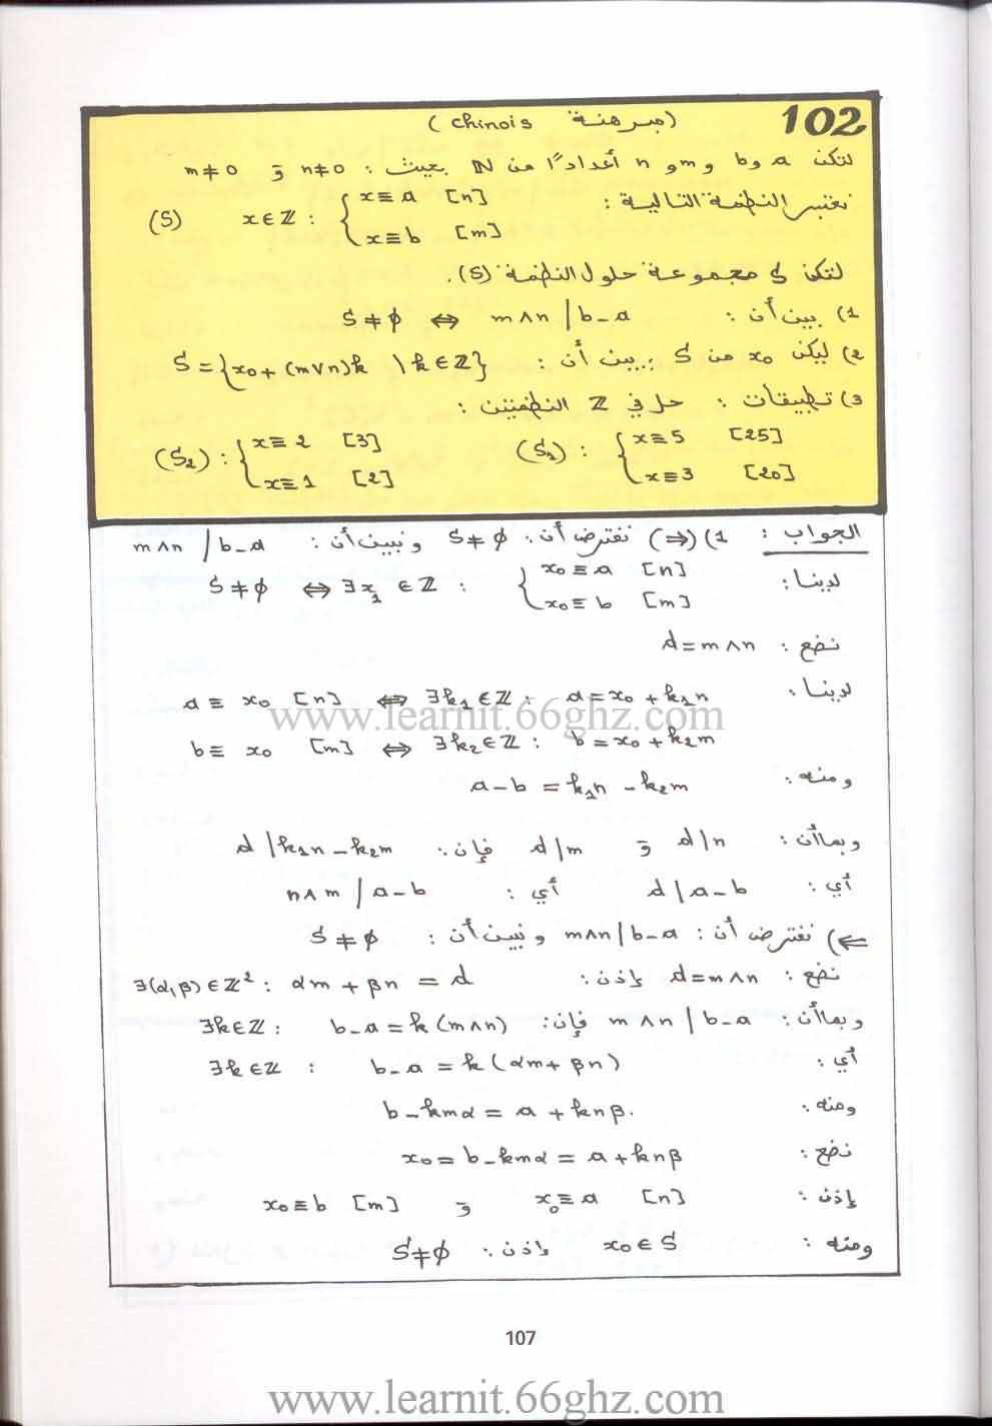 102 (مبرهنة chinois)
لتكن a و b و m و n أعدادًا من ℕ بحيث : n≠0 و m≠0
نعتبر النظمة التالية : x∈ℤ : { x≡a [n] (S)
x≡b [m]
لتكن S مجموعة حلول النظمة (S).
1) بين أن : S≠∅ ⇔ m∧n | b-a
2) ليكن x₀ من S بين أن : S={x₀+(m∨n)k \ k∈ℤ}
3) تطبيقات : حل في ℤ النظمتين :
(S₁) : { x≡5 [25] (S₂) : { x≡2 [3]
x≡3 [20] x≡1 [2]
الجواب : 1) (⇒) نفترض أن : S≠∅ و نبين أن : m∧n | b-a
لدينا : S≠∅ ⇔ ∃x₁ ∈ℤ : { x₀≡a [n]
x₀≡b [m]
نضع : d=m∧n
لدينا : a≡x₀ [n] ⇔ ∃k₁∈ℤ : a=x₀+k₁n
www.learnit.66ghz.com
b≡x₀ [m] ⇔ ∃k₂∈ℤ : b=x₀+k₂m
ومنه : a-b = k₁n - k₂m
وبما أن : d|n و d|m فإن : d | k₁n-k₂m
أي : d | a-b أي : n∧m | a-b
⇐) نفترض أن : m∧n | b-a و نبين أن : S≠∅
نضع : d=m∧n إذن : ∃(α,β)∈ℤ² : αm + βn = d
وبما أن : m∧n | b-a فإن : ∃k∈ℤ : b-a=k(m∧n)
أي : ∃k∈ℤ : b-a = k(αm+βn)
ومنه : b-kmα = a+knβ.
نضع : x₀=b-kmα = a+knβ
إذن : x₀≡a [n] و x₀≡b [m]
ومنه : x₀∈S إذن : S≠∅
107
www.learnit.66ghz.com